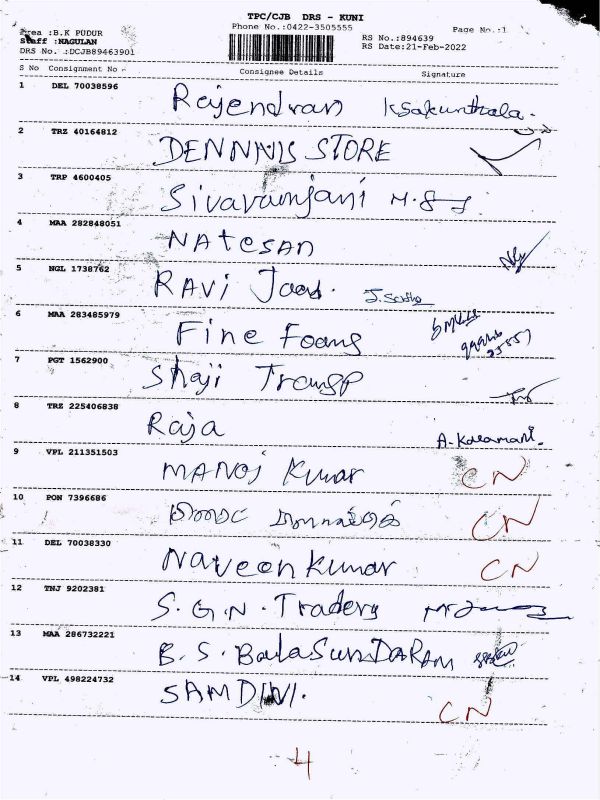 TPC/CJB DRS - KUNI
Phone No.:0422-3505555
Page No.:1
Area :B.K PUDUR
Staff :NAGULAN
DRS No. :DCJB89463901
RS No.:894639
RS Date:21-Feb-2022
S No Consignment No Consignee Details Signature
1 DEL 70038596 Rajendran Ksakunthala.
2 TRZ 40164812 DENNNIS STORE
3 TRP 4600405 Sivavamjani
4 MAA 282848051 NAtesan
5 NGL 1738762 RAVi
6 MAA 283485979 Fine Foams
7 PGT 1562900 Shaji Transp
8 TRZ 225406838 Raja A. Kalamani.
9 VPL 211351503 MANOj Kumar CN
10 PON 7396686 CN
11 DEL 70038330 Naveen Kumar CN
12 TNJ 9202381 S.G.N. Traders
13 MAA 286732221 B.S. BalaSunDARAM
14 VPL 498224732 CN
4